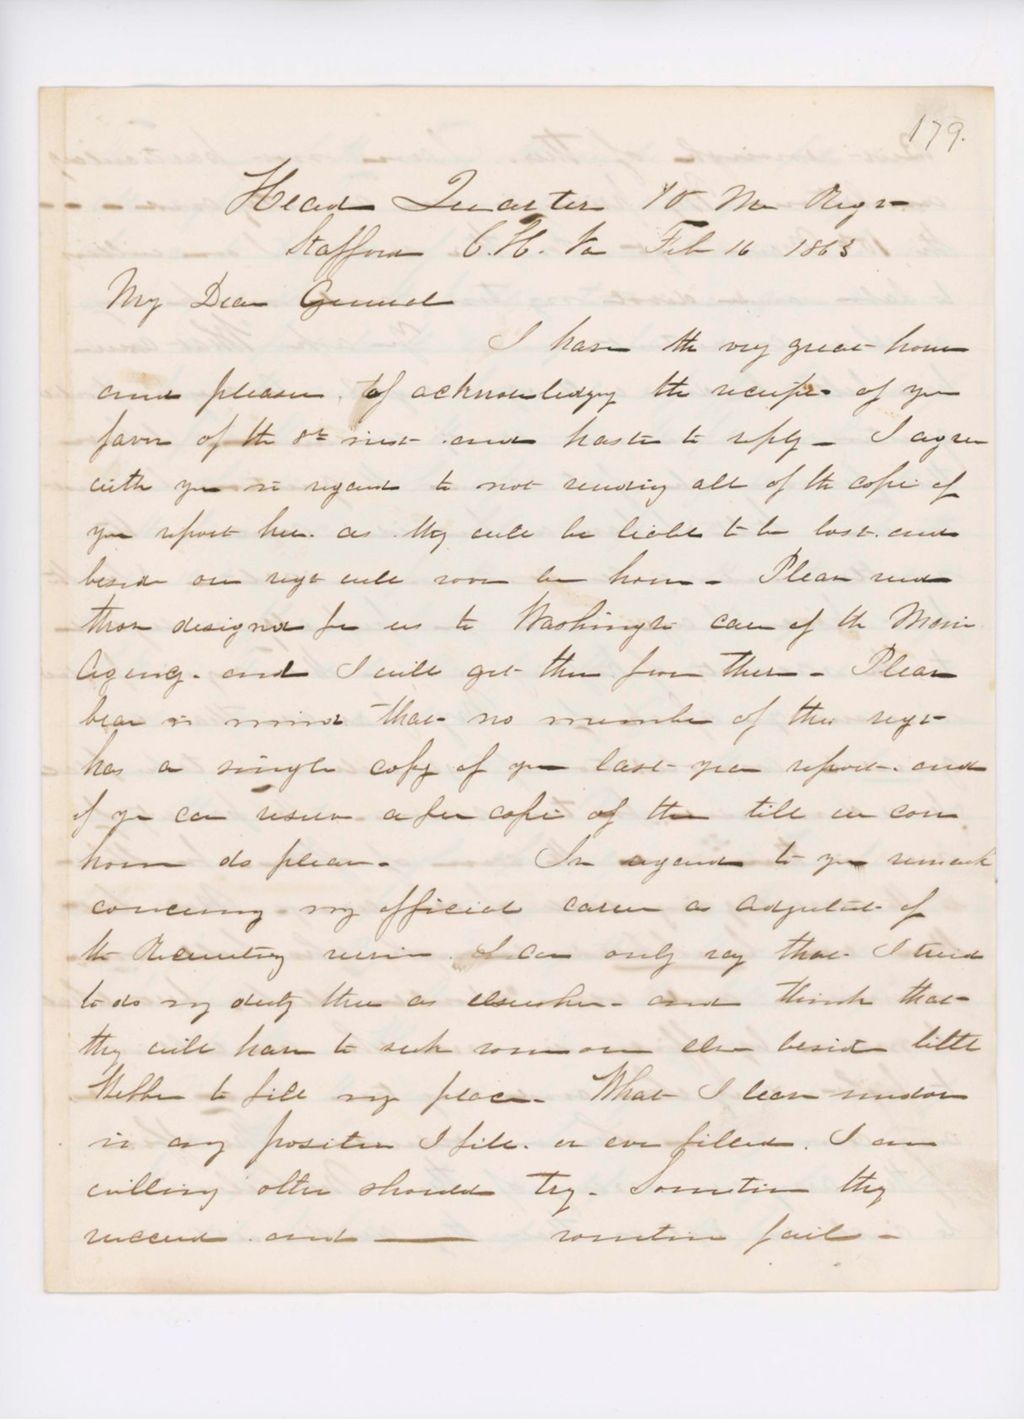 179.
Head Quarters 10 Me Regt
Stafford C.H. Va Feb 16 1863
My Dear General
I have the very great honor
and pleasure of acknowledging the receipt of your
favor of the 8th inst and haste to reply - I agree
with you in regard to not sending all of the copies of
your report here as they will be liable to be lost and
beside our regt will soon be home - Please send
those designed for us to Washington care of the Maine
Agency - and I will get them from there - Please
bear in mind that no member of this regt
has a single copy of your last year report - and
if you can reserve a few copies of them till we come
home do please - In regard to your remark
concerning my official career as adjutant of
the Recruiting service I can only say that I tried
to do my duty there as elsewhere - and think that
they will have to seek some one else beside little
to fill my place - What I leave undone
in any position I fill or ever filled, I am
willing others should try - Sometimes they
succeed and ——— sometimes fail -